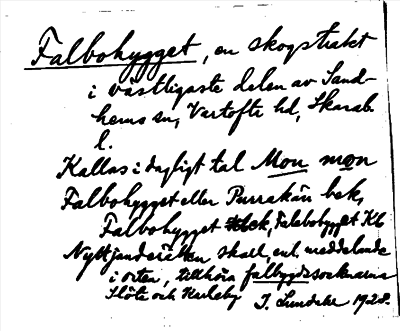 Falbohygget, en skogstrakt
i västligaste delen av Sand-
hems sn, Vartofte hd, Skarab.
l.
Kallas i dagligt tal Mon mon
Falbohygget eller Purrakärr bek,
Falbohygget bek, Falebohygget Kb
Nyttjanderätten skall, enl. meddelande
i orten, tillhöra falbygdssocknarna
Slöta och Karleby J. Lundahl 1928.